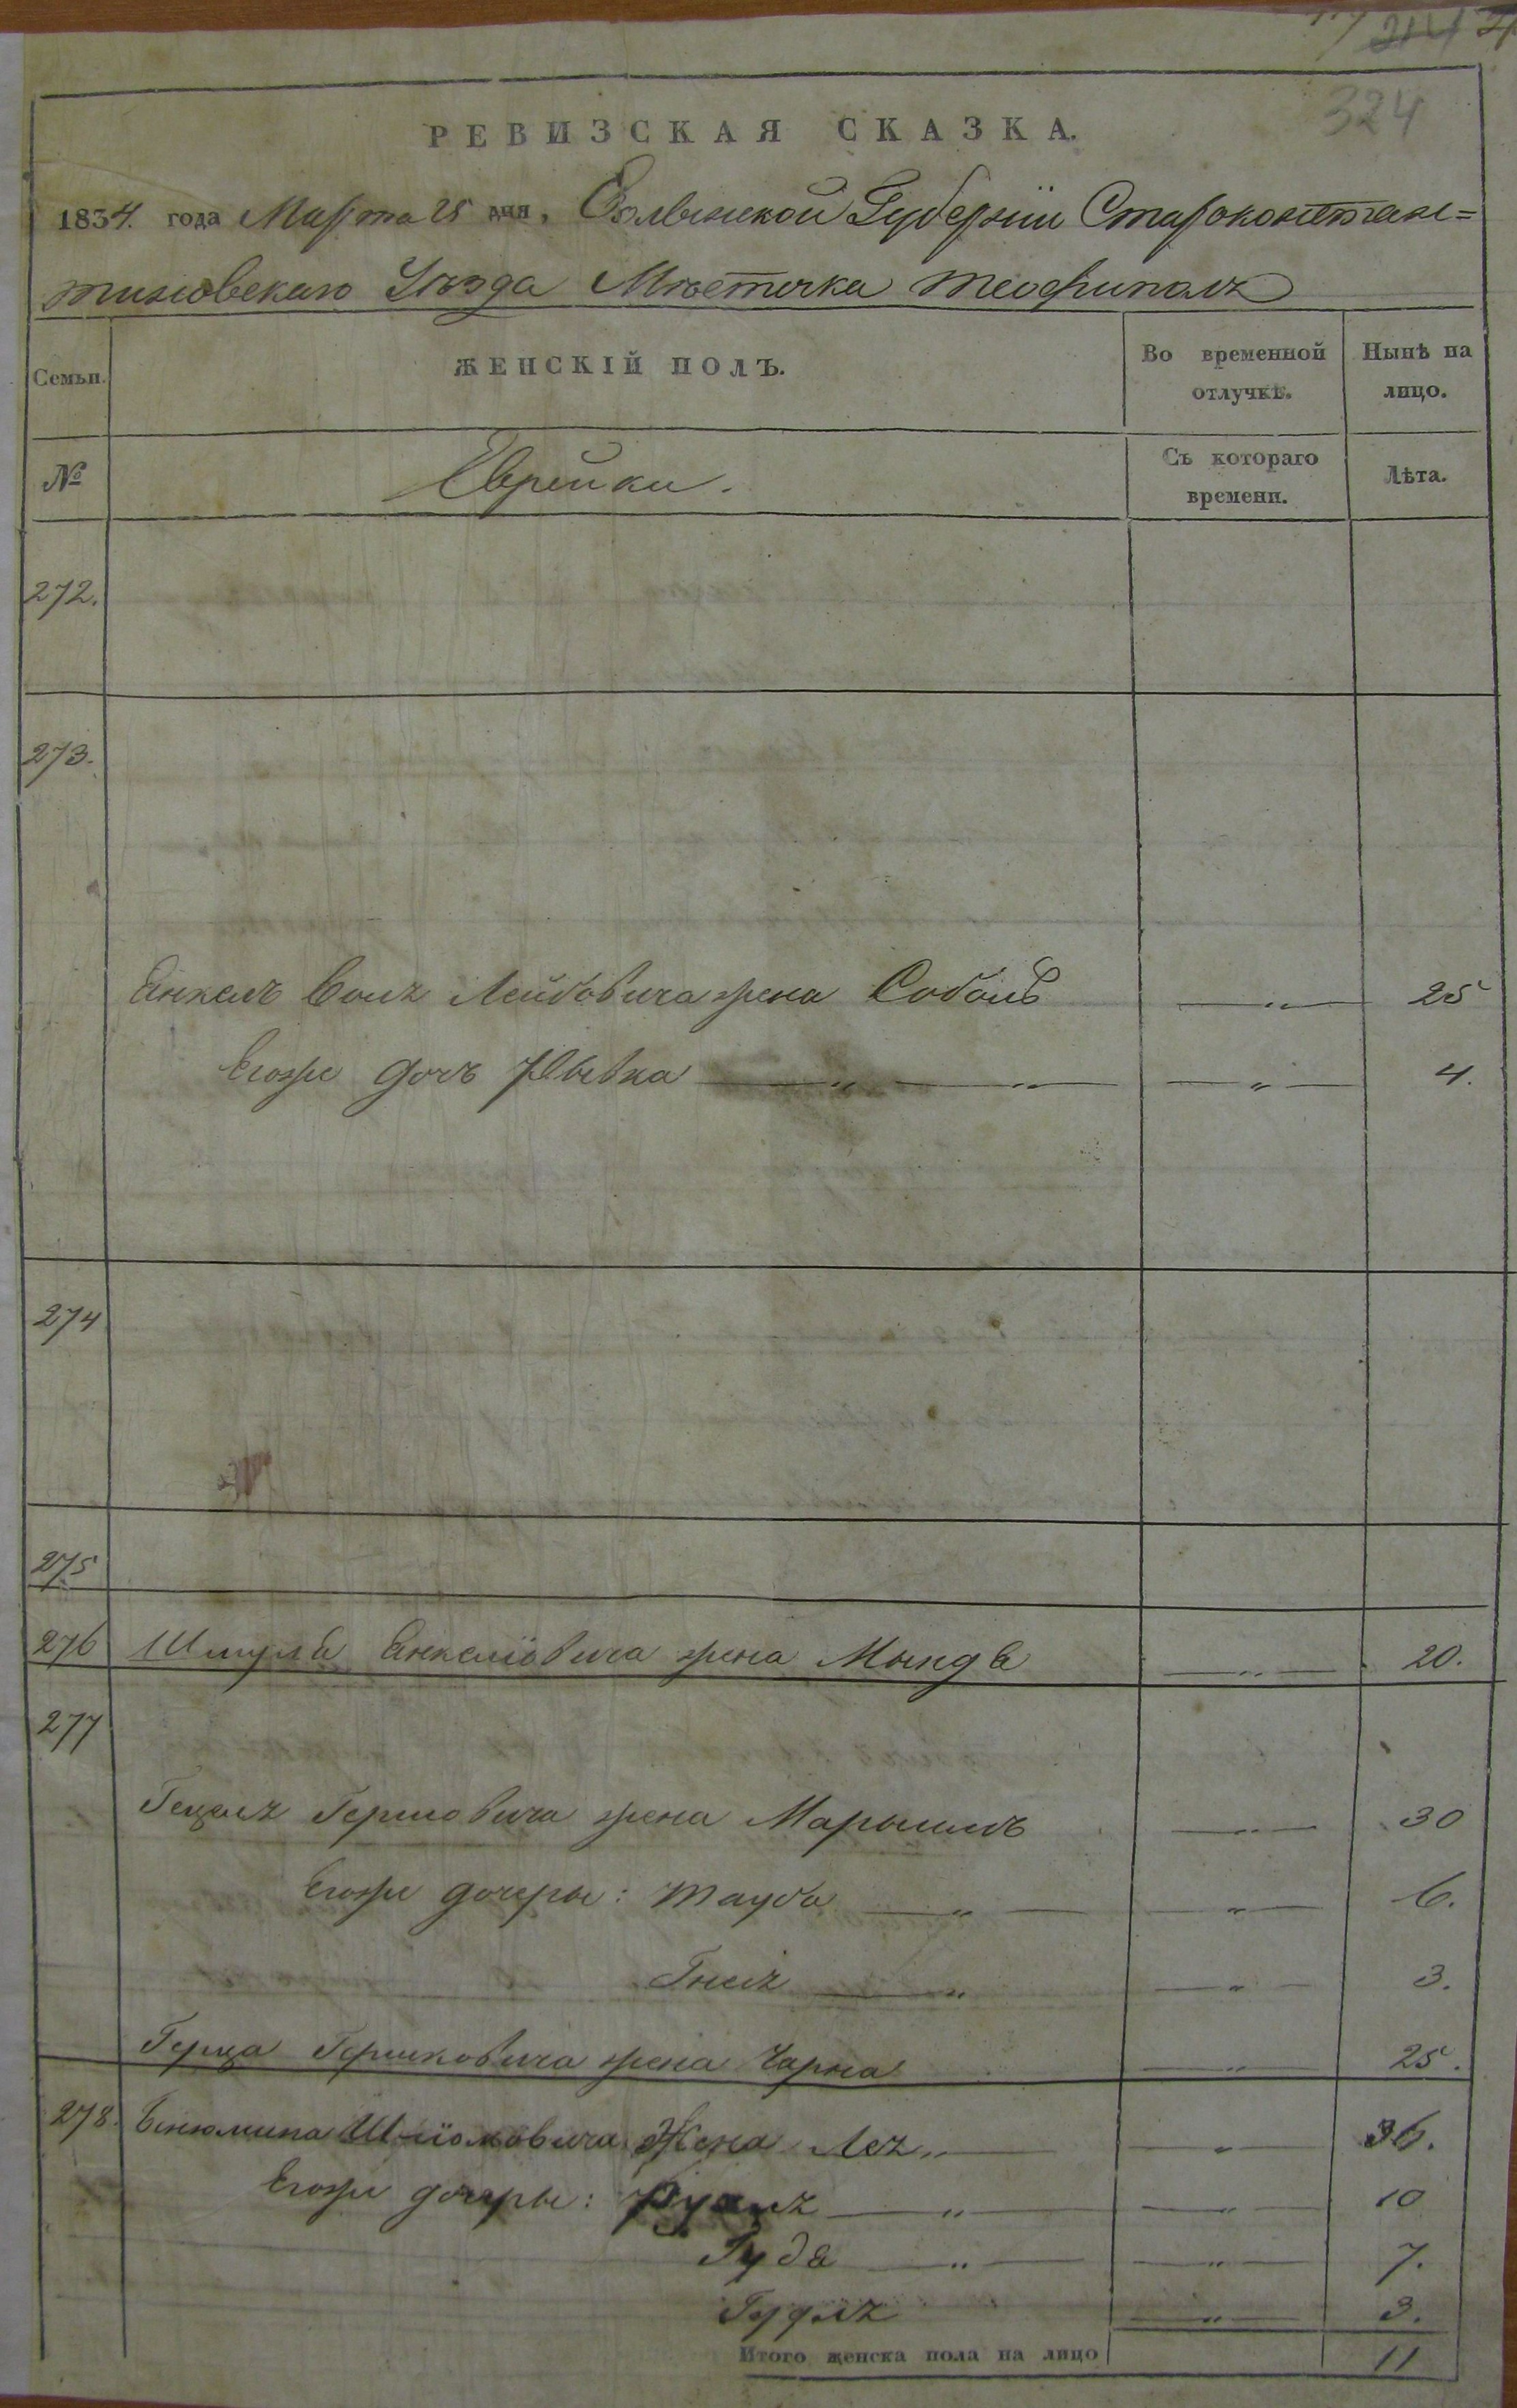 324
РЕВИЗСКАЯ СКАЗКА.
1834. года Марта 25 дня, Волынской Губернiи Староконстан=
тиновскаго Уѣзда Мѣстечка Теофиполь
Семьи. ЖЕНСКIЙ ПОЛЪ. Во временной отлучкѣ. Нынѣ на лицо.
№ Еврейки. Съ котораго времени. Лѣта.
272.
273.
Янкель Волъ Лейбовича жена Собель —„— 25
Его же дочь Рывка —„— —„— —„— 4.
274
275
276 Шмуля Янкелiовича жена Мындя —„— 20.
277
Гецель Гершовича жена Марьимъ —„— 30
Его же дочеры: Тауба —„— —„— 6.
Гнеся —„— —„— 3.
Герша Гершковича жена Чарна —„— 25.
278. Бенюмина Шлiомовича Жена Лея „— —„— 36.
Его же дочеры: —„— —„— 10
Гудя —„— —„— 7.
—„— 3.
Итого женска пола на лицо 11